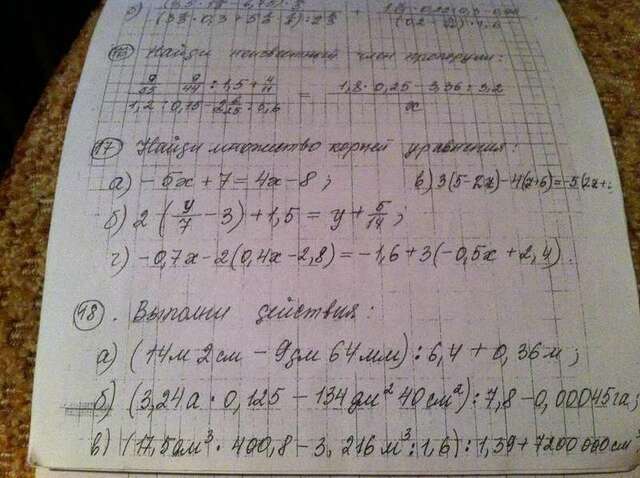 16) Найди неизвестный член пропорции:
: 1,5 + 4/11 = 1,8 · 0,25 - 3,36 : 3,2
x
17 Найди множество корней уравнения:
а) - 5x + 7 = 4x - 8; в) 3(5 - 2x) - 4(x + 6) = - 5(2x +
б) 2 (y/7 - 3) + 1,5 = y + 5/14;
г) - 0,7x - 2(0,4x - 2,8) = - 1,6 + 3(- 0,5x + 2,4)
18. Выполни действия:
а) (14м 2см - 9дм 64мм) : 6,4 + 0,36м;
б) (3,24а · 0,125 - 134дм² 40см²) : 7,8 - 0,00045га;
в) (17,5дм³ · 400,8 - 3,216м³ : 1,6) : 1,39 + 7200000см³